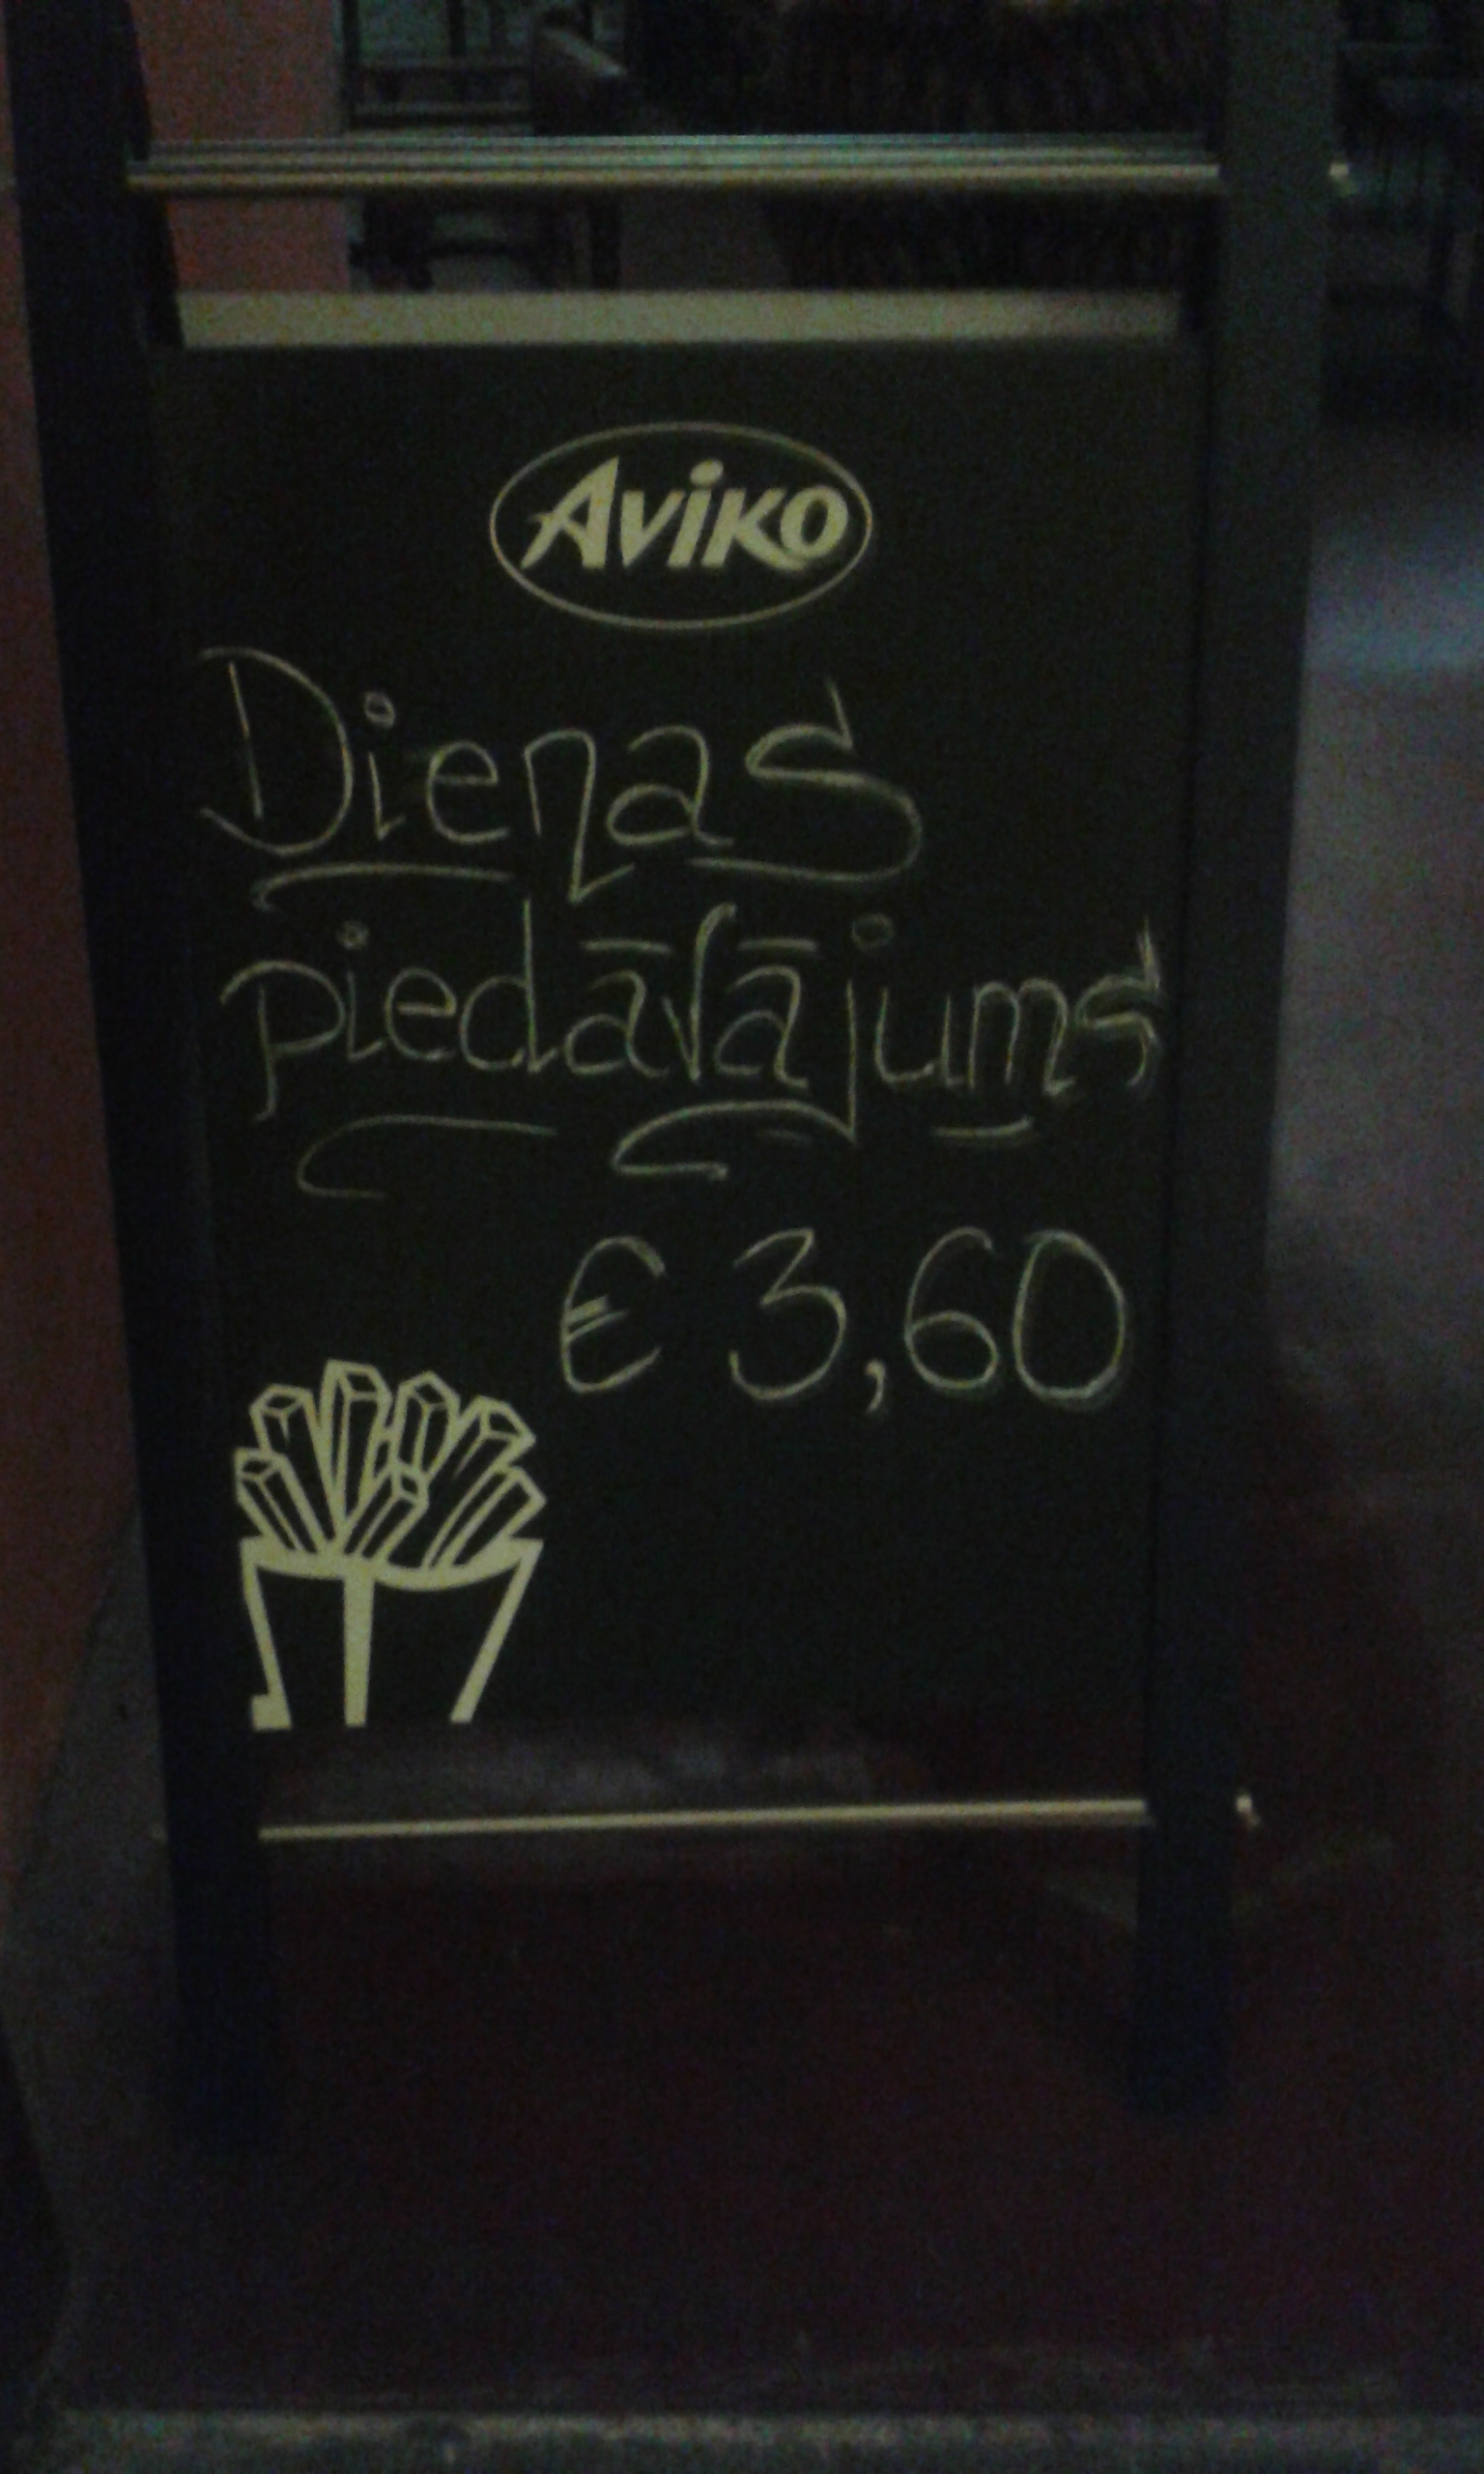 Aviko
Dienas
piedāvājums
€ 3,60